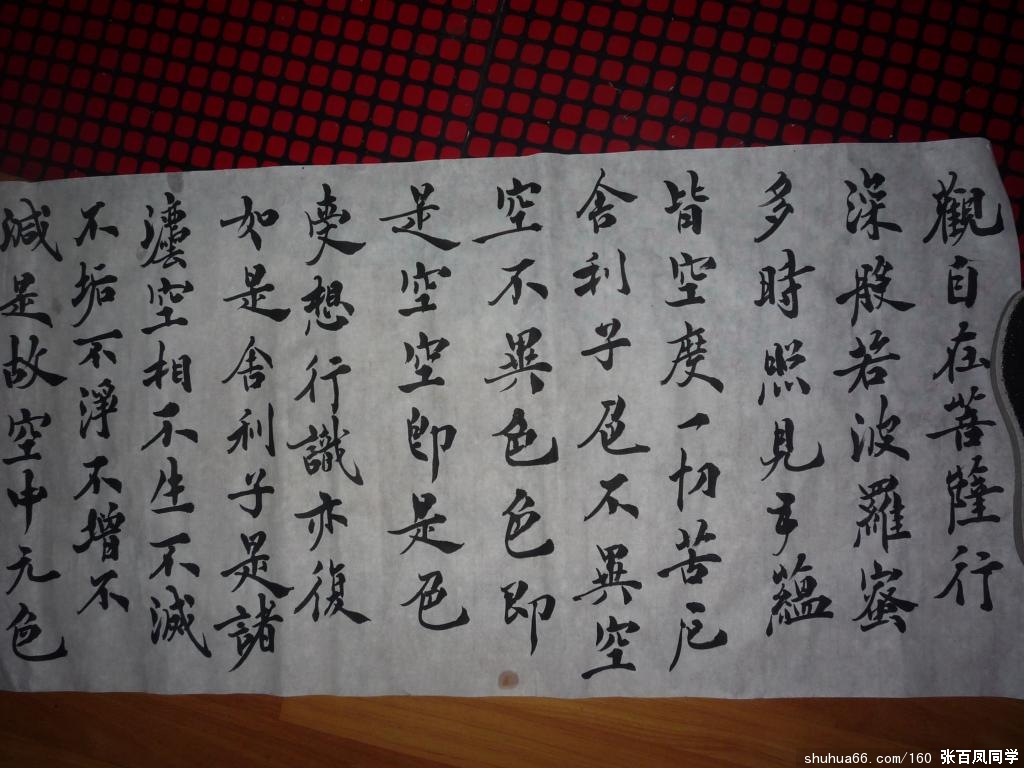 觀自在菩薩行
深般若波羅蜜
多時照見五蘊
皆空度一切苦厄
舍利子色不異空
空不異色色即
是空空即是色
受想行識亦復
如是舍利子是諸
法空相不生不滅
不垢不淨不增不
減是故空中元色
shuhua66.com/160 张百凤同学